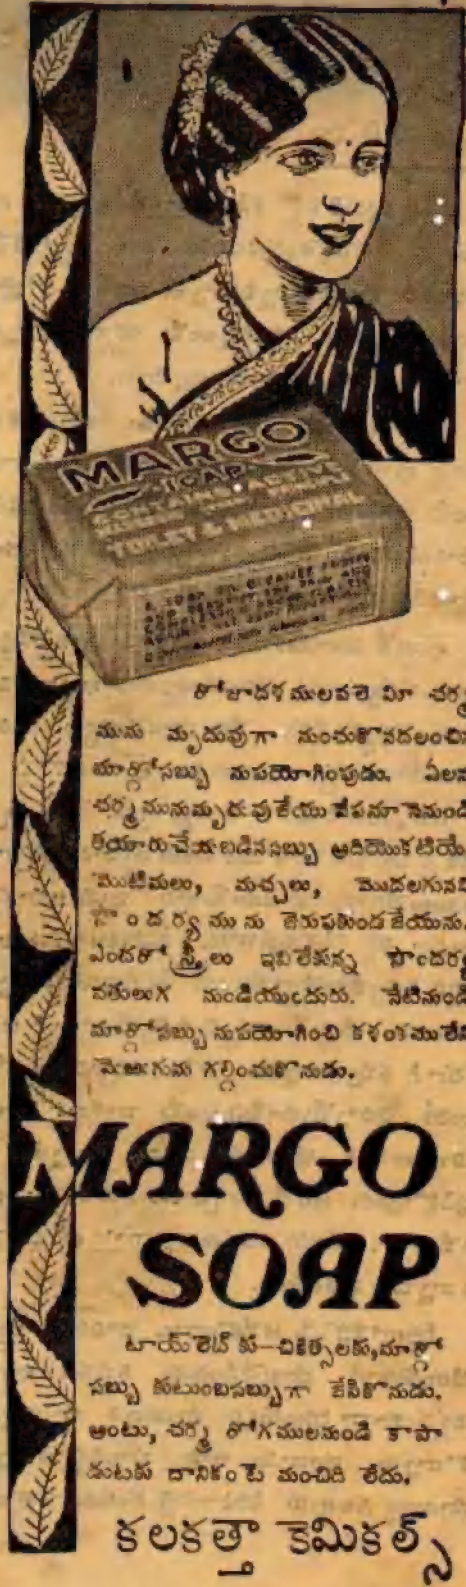 MARGO
SOAP
CONTAINS ACTIVE
TOILET & MEDICINAL
రోజాదళములవలె మీ చర్మ
మును మృదువుగా నుంచుకొనదలంచిన
మార్గోసబ్బు నుపయోగింపుడు. ఏలన
చర్మమునుమృదువుచేయు వేపనూనెనుండి
తయారుచేయబడినసబ్బు అదియొకటియే.
మొటిమలు, మచ్చలు, మొదలగునవి
సౌందర్యమును జెరుపకుండజేయును.
ఎందరో స్త్రీలు ఇవిలేకున్న సౌందర్య
వతులుగ నుండియుందురు. నేటినుండి
మార్గోసబ్బునుపయోగించి కళంకములేని
మెఱుగును గల్గించుకొనుడు.
MARGO
SOAP
టాయ్‌లెట్ కు—చికిత్సలకు, మార్గో
సబ్బు కుటుంబసబ్బుగా జేసికొనుడు.
అంటు, చర్మ రోగములనుండి కాపా
డుటకు దానికంటె మంచిది లేదు.
కలకత్తా కెమికల్స్